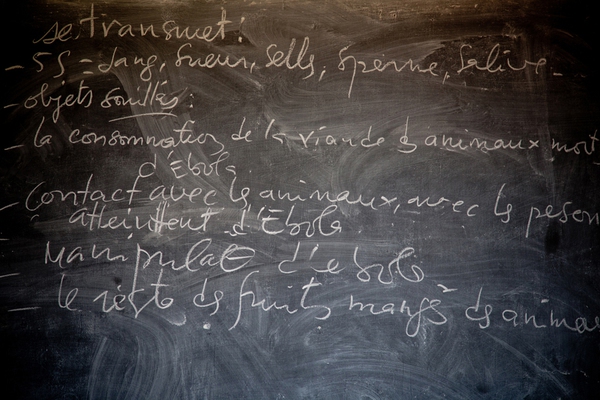 se transmet :
- 5S = Sang, Sueur, Sells, Sperme, Salive -
- objets souillés :
- la consommation de la viande d animaux mort
d'Ebola.
- Contact avec les animaux, avec les peson
atteintent d'Ebola.
- Manipulat d'ebola
- le reste ds fruits mangé ds animau